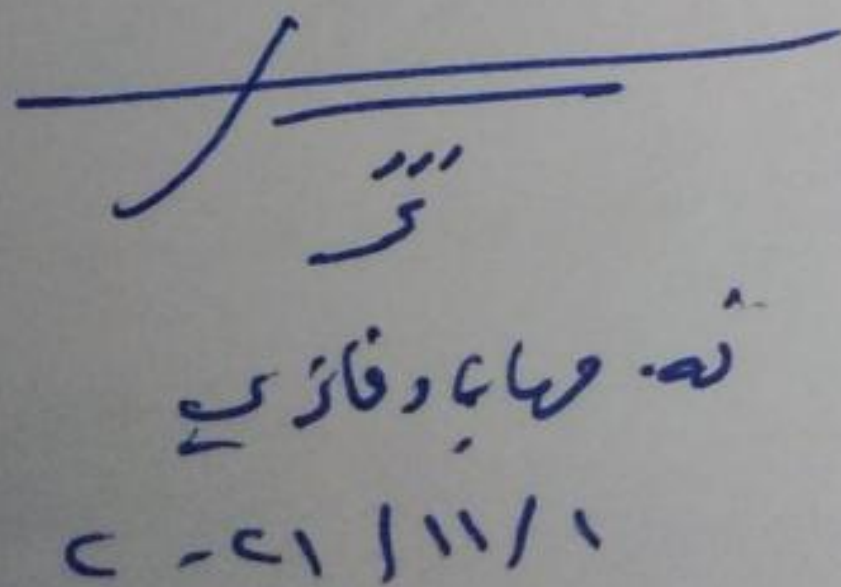 ئە. مهاباد فازى
٢٠٢١/١١/١